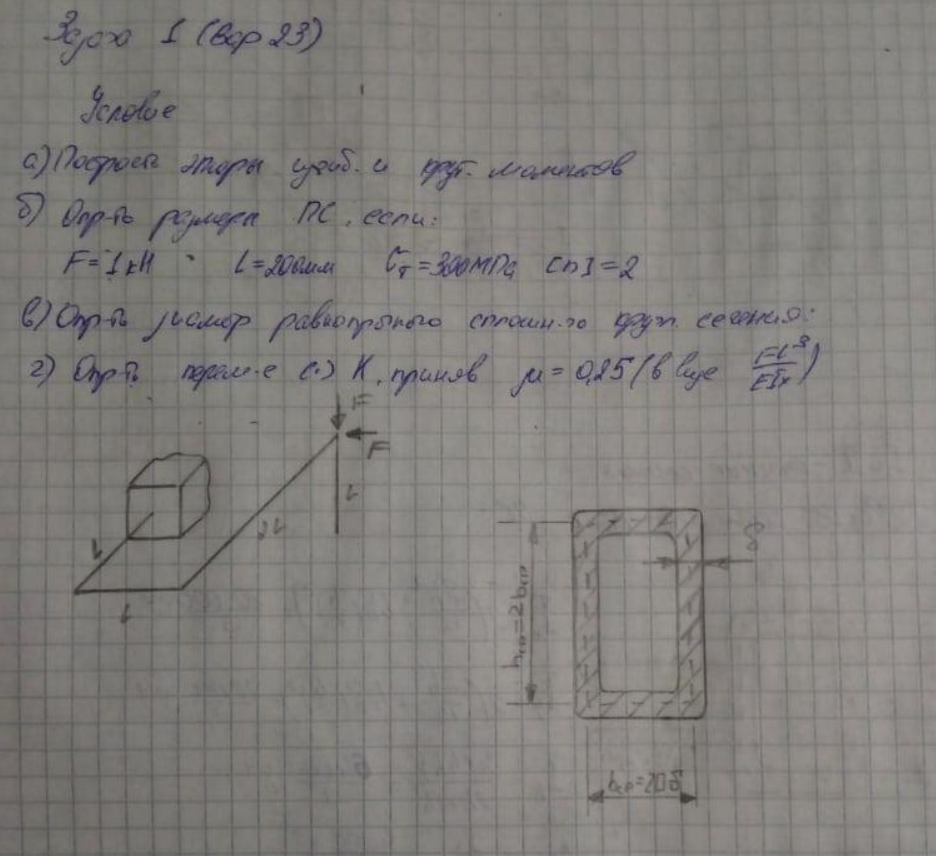 Задача 1 (Вар 23)
Условие
а) Построить эпоры изгиб. и крут. моментов
б) Опр-ть размеры ПС, если:
F=1кН L=200мм σт=300МПа [n]=2
в) Опр-ть равнопрочного сплошн-го кругл. сечения:
г) Опр-ть перем-е (·) К, приняв μ=0,25 (в виде FL³/EIx)
F
F
L
2L
L
L
δ
hср=2bср
bср=20δ